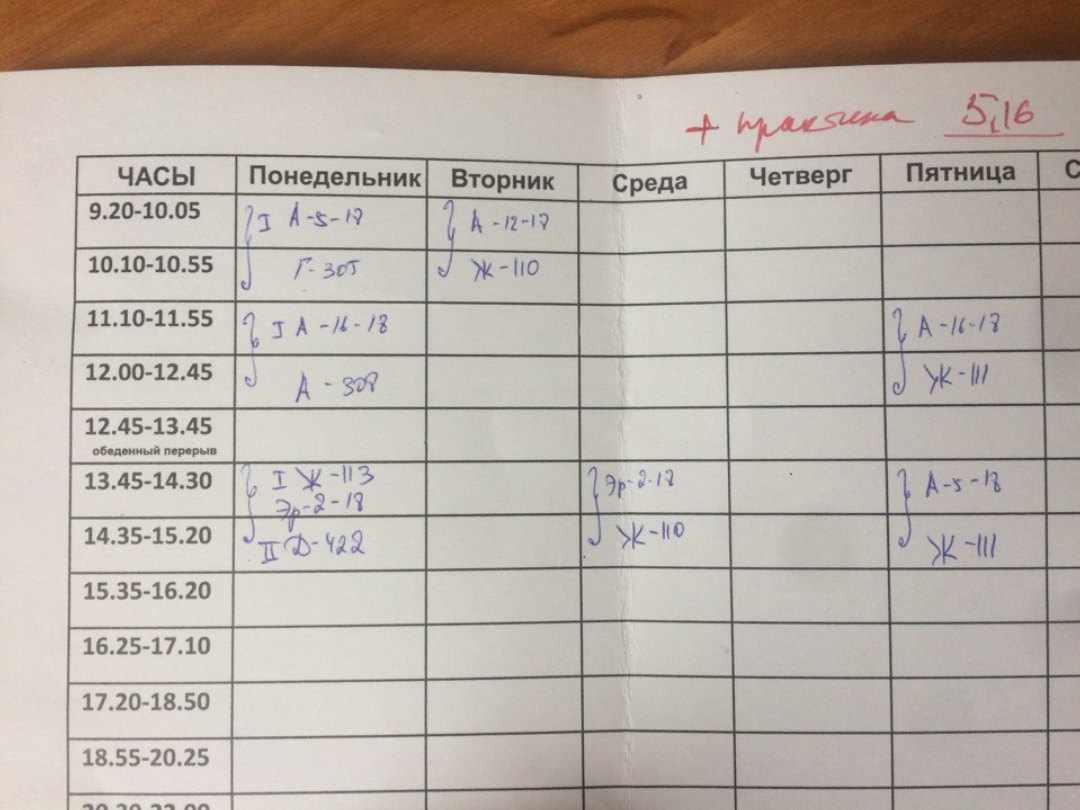 + практика 5,16
ЧАСЫ Понедельник Вторник Среда Четверг Пятница С
9.20-10.05 I А-5-18 А-12-17
10.10-10.55 Г-305 Ж-110
11.10-11.55 I А-16-18 А-16-18
12.00-12.45 А-308 Ж-111
12.45-13.45
обеденный перерыв
13.45-14.30 I Ж-113 Эр-2-18 А-5-18
Эр-2-18
14.35-15.20 II Д-422 Ж-110 Ж-111
15.35-16.20
16.25-17.10
17.20-18.50
18.55-20.25
20.30-22.00